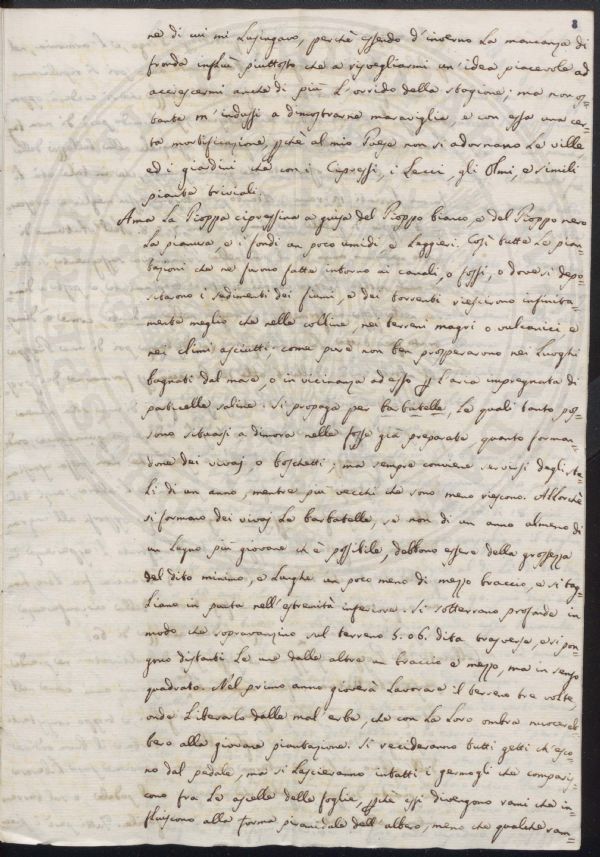 8
ne di cui mi lusingavo, perchè essendo d'inverno la mancanza di
fronda influì piuttosto che a risvegliarmi un'idea piacevole ad
accrescermi anche di più l'orrido della stagione; ma non os=
tante m'indussi a dimostrarne maraviglia, e con essa una cer=
ta mortificazione, pchè al mio Paese non si adornano le ville,
ed i giardini che con i Cipressi, i Lecci, gli Olmi, e simili
piante triviali.
Ama la Pioppa cipressina a guisa del Pioppo bianco, e del Pioppo nero
la pianura e i fondi un poco umidi e leggieri. Così tutte le pian=
tazioni che ne furono fatte intorno ai canali, o fossi, o dove si depo=
sitarono i sedimenti dei fiumi, e dei torrenti riescirono infinita=
mente meglio che nelle colline, nei terreni magri o vulcanici, e
nei climi asciutti; come pure non ben prosperarono nei luoghi
bagnati dal mare, o in vicinanza ad esso p l'aria impregnata di
particelle saline. Si propaga per barbatelle, le quali tanto pos=
sono situarsi a dimora nelle fosse già preparate quanto forman=
done dei vivaj o boschetti; ma sempre conviene servirsi degli sta=
li di un anno, mentre più vecchi che sono meno riescono. Allorchè
si formano dei vivaj le barbatelle, se non di un anno almeno di
un legno più giovane ch'è possibile, debbono essere della grossezza
del dito minimo, e lunghe un poco meno di mezzo braccio, e si tag=
liano in punta nell'estremità inferiore. Si sotterrano profonde in
modo che sopravanzino sul terreno 5. o 6. dita trasverse, e si pon=
gono distanti le une dalle altre un braccio e mezzo, ma in senso
quadrato. Nel primo anno gioverà lavorare il terreno tre volte,
onde liberarlo dalle mal'erbe, che con la loro ombra nuocereb=
bero alla giovane piantazione. Si recideranno tutti getti ch'esco=
no dal pedale, ma si lascieranno intatti i germogli che comparis=
cono fra le ascelle delle foglie, pchè essi divengono rami che in=
fluiscono alla forma piramidale dell'albero, meno che qualche ram=